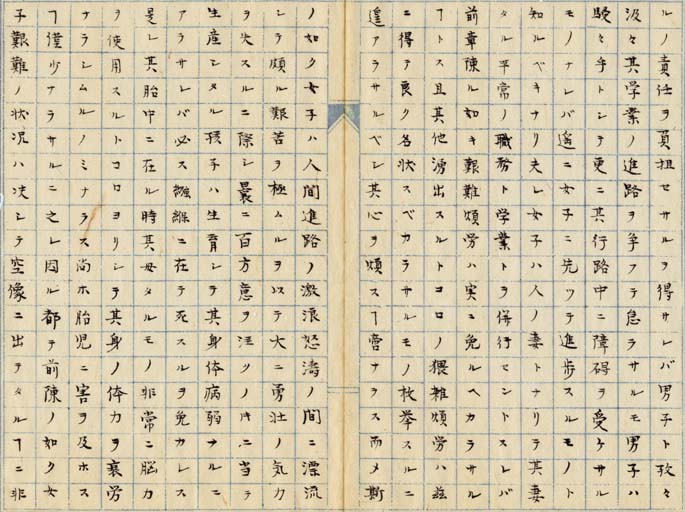 ルノ責任ヲ負担セサルヲ得サレバ男子ト孜々
汲々其学業ノ進路ヲ争フテ怠ラサルモ男子ハ
駸々乎トシテ更ニ其行路中ニ障碍ヲ受ケサル
モノナレバ遥ニ女子ニ先ツテ進歩スルモノト
知ルベキナリ夫レ女子ハ人ノ妻トナリテ其妻
タル平常ノ職務ト学業トヲ併行セントスレバ
前章陳ル如キ艱難煩労ハ実ニ免ルヘカラサル
ヿトス且其他湧出スルトコロノ猥雑煩労ハ玆
ニ得テ良ク各状スベカラサルモノ枚挙スルニ
遑アラサルベシ其心ヲ煩スヿ啻ナラス而メ斯
ノ如ク女子ハ人間進路ノ激浪怒濤ノ間ニ漂流
シテ頗ル艱苦ヲ極ムルヲ以テ大ニ勇壮ノ気力
ヲ失スルニ際シ曩ニ百方意ヲ注ツノ件ニ当テ
生産シタル孩子ハ生育シテ其身体病弱ナルニ
アラサレバ必ス襁緥ニ在テ死スルヲ免カレス
是レ其胎中ニ在ル時其母タルモノ非常ニ脳力
ヲ使用スルトコロヨリシテ其身ノ体力ヲ衰労
ナラシムルノミナラス尚ホ胎児ニ害ヲ及ホス
ヿ僅少ナラサルニ之レ因ル都テ前陳ノ如ク女
子艱難ノ状況ハ决シテ空像ニ出ヲタルヿニ非